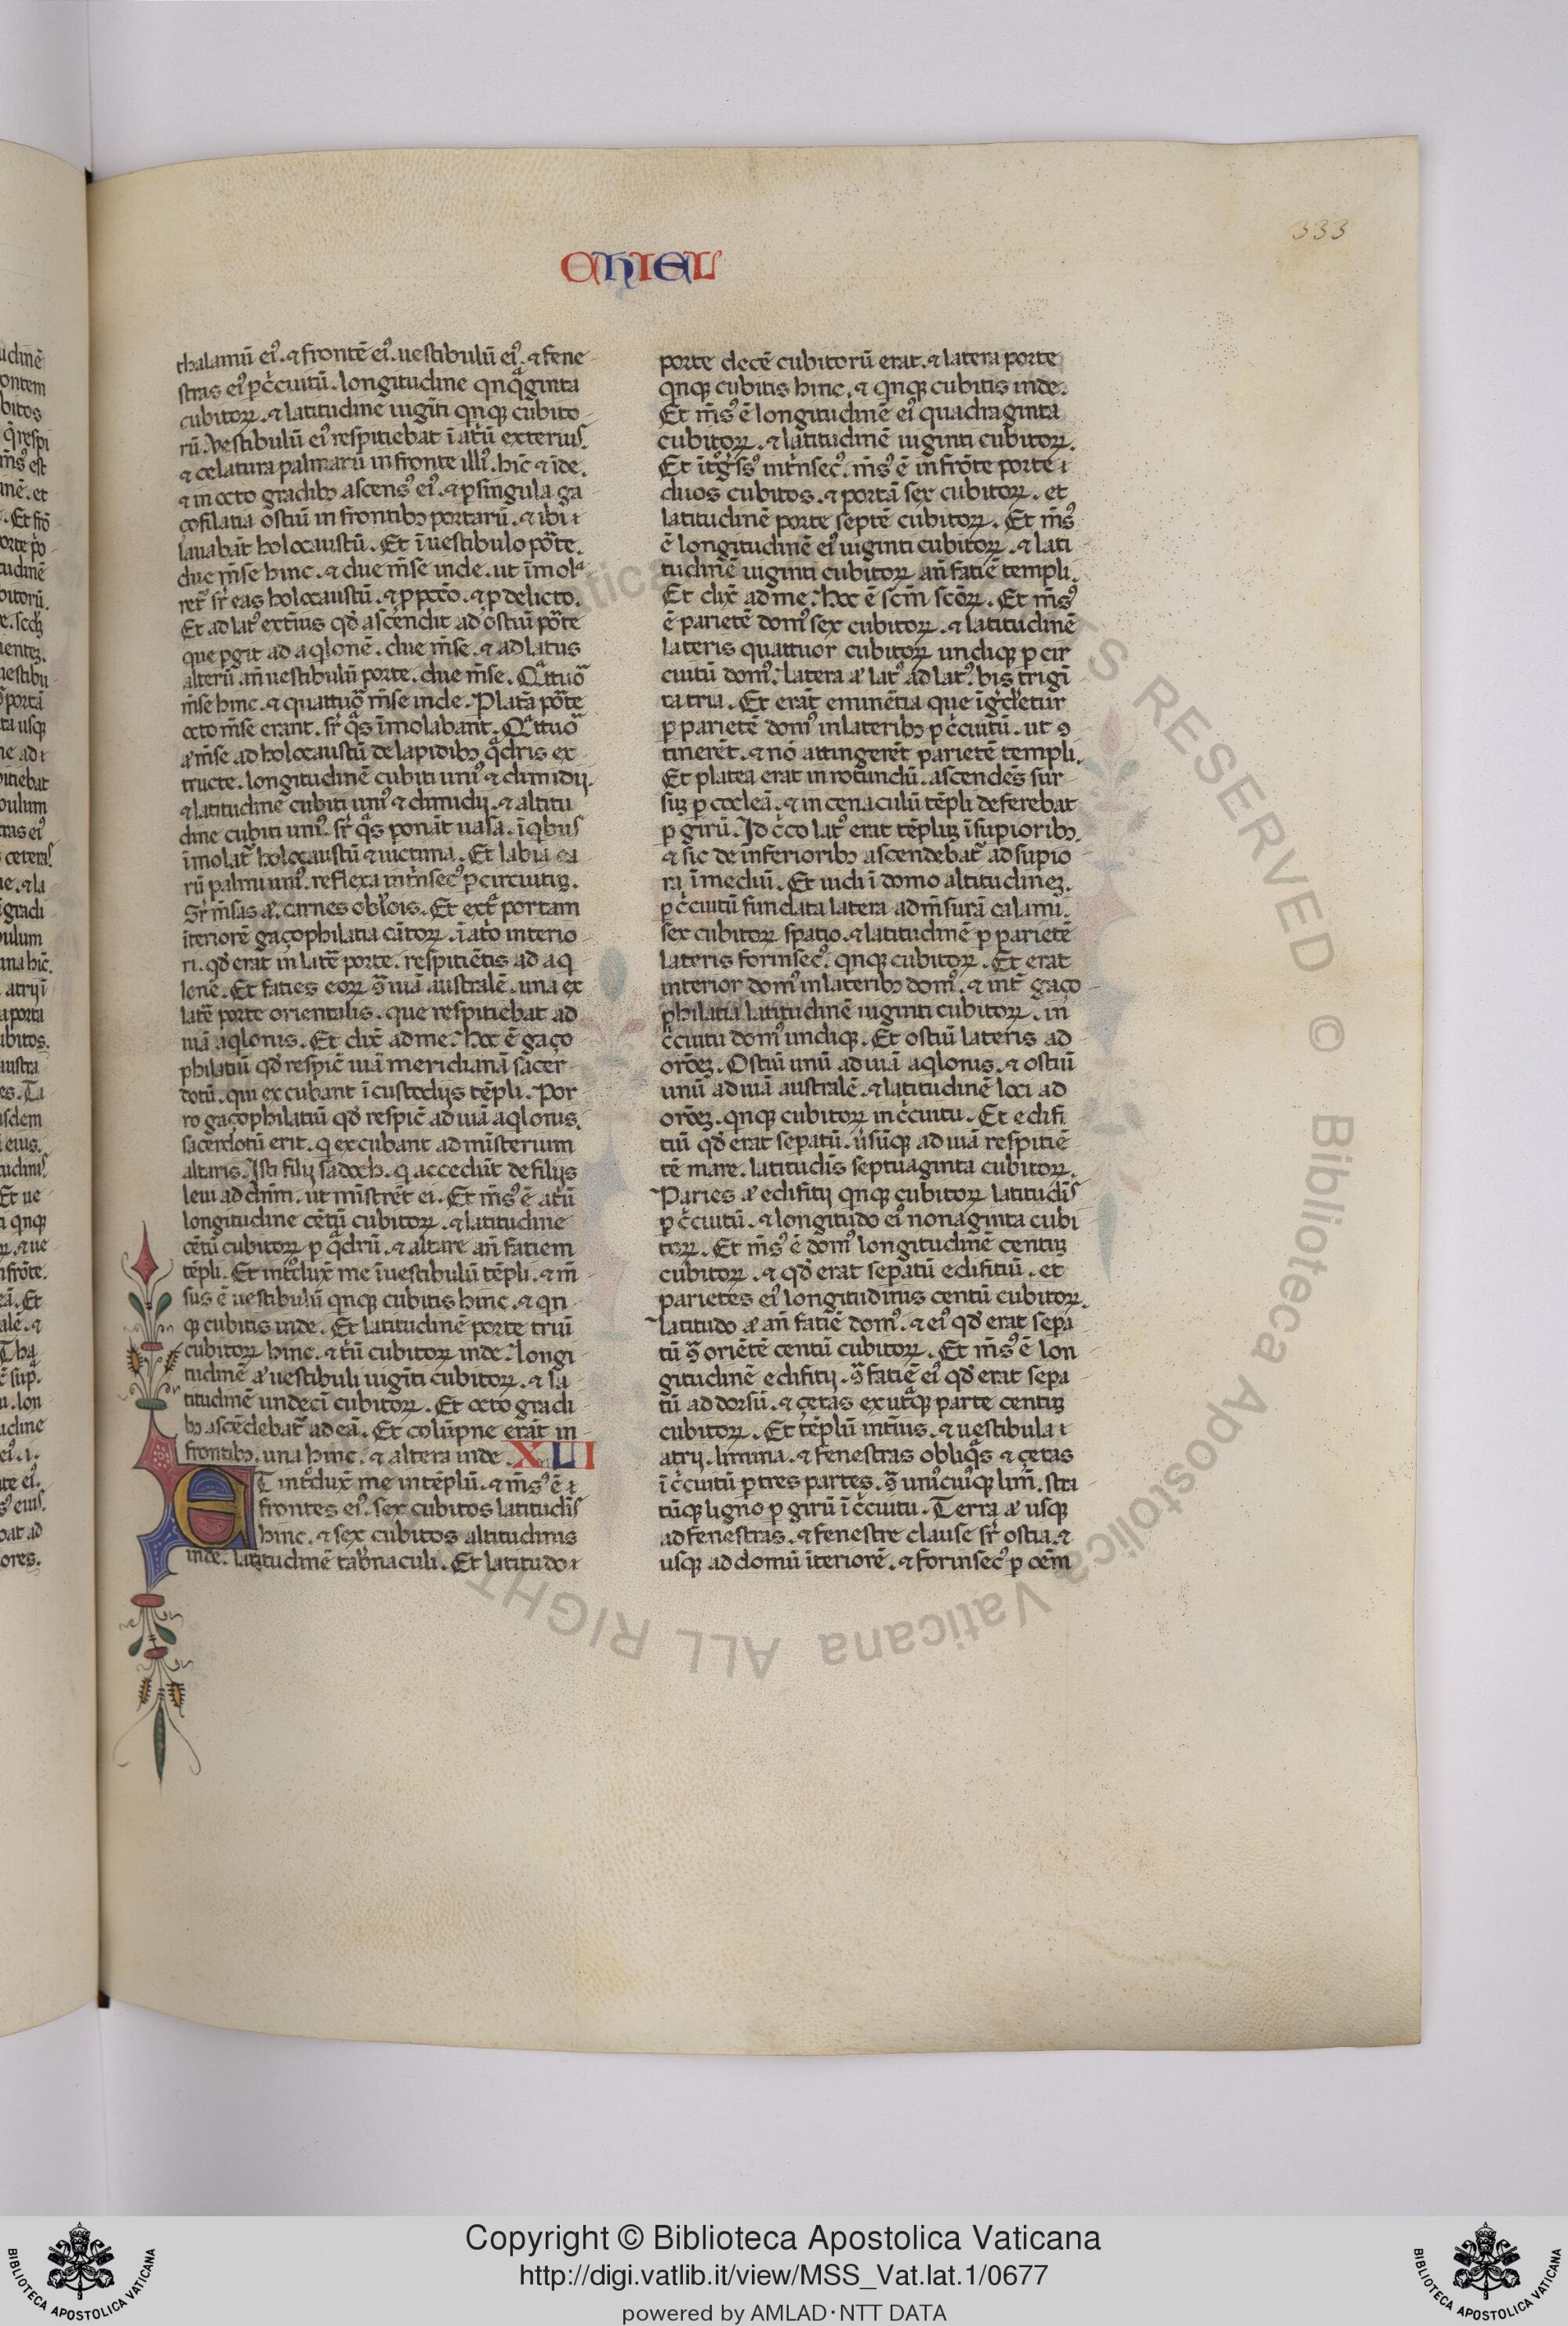 333
CHIEL
thalamū ei᷒. ⁊ frontē ei᷒. uestibulū ei᷒. ⁊ fene
stras ei᷒ ꝑ c̄cuitū. longitudine qnqᷓginta
cubitoꝝ. ⁊ latitudine uigīti qnqꝫ cubito
rū. Vestibulū ei᷒ respitiebat ī at̄ū exterius.
⁊ celatura palmarū in fronte illi᷒. hīc ⁊ īde.
⁊ in octo gradibꝫ ascens᷒ ei᷒. ⁊ ꝑ singula ga
çofilatia ostiū in frontibꝫ portarū. ⁊ ibi
lauabāt holocaustū. Et ī uestibulo pōte.
due m̄se hinc. ⁊ due m̄se inde. ut īmolᵃ
ret᷑ sr̄ eas holocaustū. ⁊ ꝓ pccō. ⁊ ꝓ delicto.
Et ad lat᷒ ext̄ius qd̄ ascendit ad ostiū pōte
que ꝑgit ad aqlonē. due m̄se. ⁊ ad latus
alterū an̄ uestibulū porte. due m̄se. Qᷓttuō
m̄se hinc. ⁊ quattuō m̄se inde. Ꝑ latᷓa pōte
octo m̄se erant. sr̄ qᷓs īmolabant. Qᷓttuō
aͤ m̄se ad holocaustū de lapidibꝫ qᷓdris ex
tructe. longitudinē cubiti uni᷒ ⁊ dimidij.
⁊ latitudine cubiti uni᷒ ⁊ dimidij. ⁊ altitu
dine cubiti uni᷒. sr̄ qᷓs ponāt uasa. ī qbus
īmolat᷑ holocaustū ⁊ uictima. Et labia ea
rū palmi uni᷒. reflexa int̄nsec᷒ ꝑ circuituꝫ.
Sr̄ m̄sas aͤ. carnes obl̄ois. Et ext̄ portam
īteriorē gaçophilatia cātoꝝ. ī at̄o interio
ri. qd̄ erat in latē porte. respitiētis ad aq
lonē. Et faties eoꝝ ꝯᷓ uiā australē. una ex
latē porte orientalis. que respitiebat ad
uiā aqlonis. Et dix̄ ad me. Hoc ē gaço
philatiū qd̄ respic̄ uiā meridianā sacer
dotū. qui excubant ī custodijs tēpli. Por
ro gaçophilatiū qd̄ respic̄ ad uiā aqlonis.
sacerdotū erit. q excubant ad mīsterium
altaris. Isti filij sadoch. q accedūt de filijs
leui ad dn̄m. ut mīstrēt ei. Et m̄s᷒ ē at̄ū
longitudine cētū cubitoꝝ. ⁊ latitudine
cētū cubitoꝝ ꝑ qᷓdrū. ⁊ altare an̄ fatiem
tēpli. Et int̄dux̄ me ī uestibulū tēpli. ⁊ m̄
sus ē uestibulū qnqꝫ cubitis hinc. ⁊ qn
qꝫ cubitis inde. Et latitudinē porte triū
cubitoꝝ hinc. ⁊ t̄ū cubitoꝝ inde. Longi
tudinē aͤ uestibuli uigīti cubitoꝝ. ⁊ la
titudinē undeci cubitoꝝ. Et octo gradi
bꝫ ascēdebat᷑ ad eā. Et colūpne erāt in
frontibꝫ. una hinc. ⁊ altera inde. XLI
ET int̄dux̄ me in tēplū. ⁊ m̄s᷒ ē
frontes ei᷒. sex cubitos latitudīs
hinc. ⁊ sex cubitos altitudinis
inde. latitudinē tab̄naculi. Et latitudo
porte decē cubitorū erat. ⁊ latera porte
qnqꝫ cubitis hinc. ⁊ qnqꝫ cubitis inde.
Et m̄s᷒ ē longitudinē ei᷒ quadraginta
cubitoꝝ. ⁊ latitudinē uiginti cubitoꝝ.
Et īt̄gr̄ss᷒ int̄nsec᷒. m̄s᷒ ē in frōte porte
duos cubitos. ⁊ portā sex cubitoꝝ. et
latitudinē porte septē cubitoꝝ. Et m̄s᷒
ē longitudinē ei᷒ uiginti cubitoꝝ. ⁊ lati
tudinē uiginti cubitoꝝ an̄ fatiē templi.
Et dix̄ ad me. Hoc ē scm̄ scōꝝ. Et m̄s᷒
ē parietē dom᷒ sex cubitoꝝ. ⁊ latitudinē
lateris quattuor cubitoꝝ undiqꝫ ꝑ cir
cuitū dom᷒. latera aͤ lat᷒ ad lat᷒. bis trigī
ta tria. Et erāt eminētia que īgr̄detur
ꝑ parietē dom᷒ in lateribꝫ ꝑ c̄cuitū. ut ꝯ
tinerēt. ⁊ nō attingerēt parietē templi.
Et platea erat in rotundū. ascendēs sur
suꝫ ꝑ cocleā. ⁊ in cenaculū tēpli deferebat
ꝑ girū. Id c̄co lat᷒ erat tēpluꝫ ī supioribꝫ.
⁊ sic de inferioribꝫ ascendebat᷑ ad supio
ra ī mediū. Et uidi ī domo altitudineꝫ.
ꝑ c̄cuitū fundata latera ad m̄surā calami.
sex cubitoꝝ spatio. ⁊ latitudinē ꝑ parietē
lateris forinsec᷒. qnqꝫ cubitoꝝ. Et erat
interior dom᷒ in lateribꝫ dom᷒. ⁊ int̄ gaço
philatia latitudinē uiginti cubitoꝝ. in
c̄cuitu dom᷒ undiqꝫ. Et ostiū lateris ad
orōeꝫ. Ostiū unū ad uiā aqlonis. ⁊ ostiū
unū ad uiā australē. ⁊ latitudinē loci ad
orōeꝫ. qnqꝫ cubitoꝝ in c̄cuitu. Et edifi
tiū qd̄ erat sepatū. ūsūqꝫ ad uiā respitiē
tē mare. latitudīs septuaginta cubitoꝝ.
Paries aͤ edifitij qnqꝫ cubitoꝝ latitudīs
ꝑ c̄cuitū. ⁊ longitudo ei᷒ nonaginta cubi
toꝝ. Et m̄s᷒ ē dom᷒ longitudinē centuꝫ
cubitoꝝ. ⁊ qd̄ erat sepatū edifitiū. et
parietes ei᷒ longitudinis centū cubitoꝝ.
Latitudo aͤ an̄ fatiē dom᷒. ⁊ ei᷒ qd̄ erat sepa
tū ꝯᷓ oriētē centū cubitoꝝ. Et m̄s᷒ ē lon
gitudinē edifitij. ꝯᷓ fatiē ei᷒ qd̄ erat sepa
tū ad dorsū. ⁊ çetas ex utᷓqꝫ parte centuꝫ
cubitoꝝ. Et tēplū int̄ius. ⁊ uestibula
atrij. limina. ⁊ fenestras obliqᷓs ⁊ çetas
ī c̄cuitū ꝑ tres partes. ꝯᷓ uni᷒cui᷒qꝫ lim̄. stra
tūqꝫ ligno ꝑ girū ī c̄cuitu. Terra aͤ usqꝫ
ad fenestras. ⁊ fenestre clause sr̄ ostia. ⁊
usqꝫ ad domū īteriorē. ⁊ forinsec᷒ ꝑ oēm
Copyright © Biblioteca Apostolica Vaticana
http://digi.vatlib.it/view/MSS_Vat.lat.1/0677
powered by AMLAD·NTT DATA
BIBLIOTECA APOSTOLICA VATICANA
BIBLIOTECA APOSTOLICA VATICANA